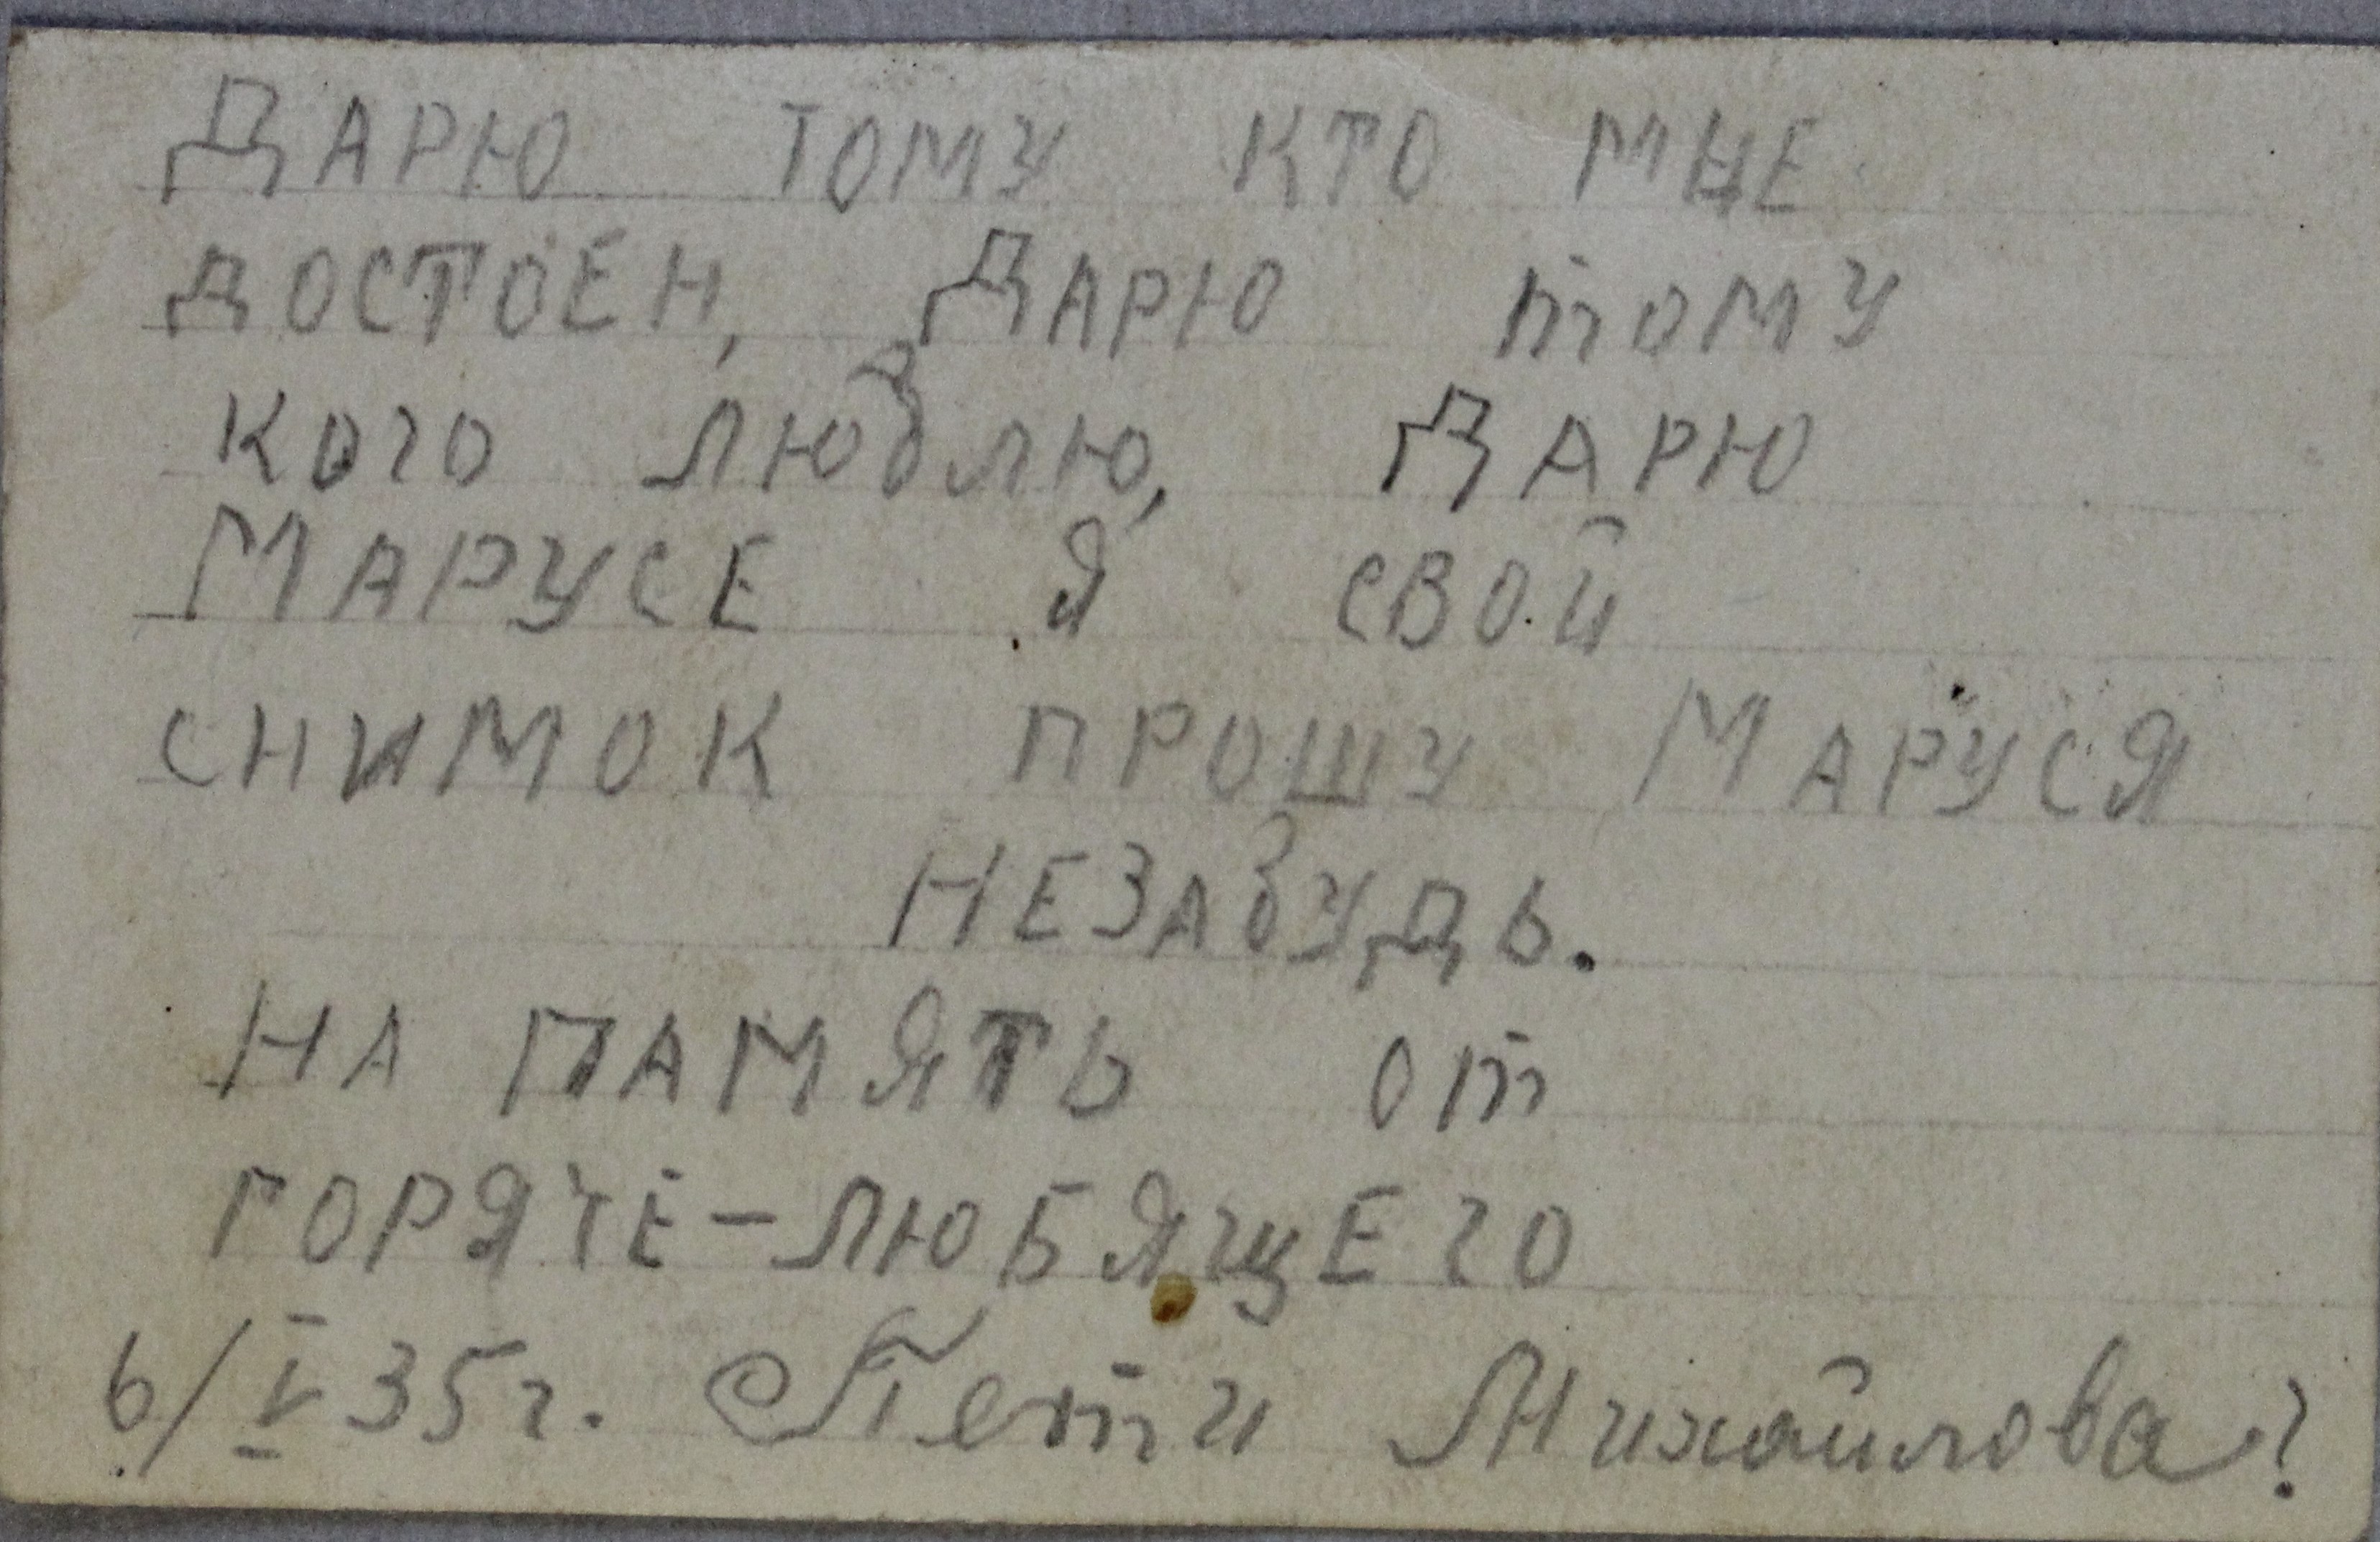 ДАРЮ ТОМУ КТО МНЕ
ДОСТОЕН, ДАРЮ ТОМУ
КОГО ЛЮБЛЮ, ДАРЮ
МАРУСЕ Я СВОЙ
СНИМОК ПРОШУ МАРУСЯ
НЕЗАБУДЬ.
НА ПАМЯТЬ ОТ
ГОРЯЧЕ-ЛЮБЯЩЕГО
6/V 35г. Пети Михайлова?